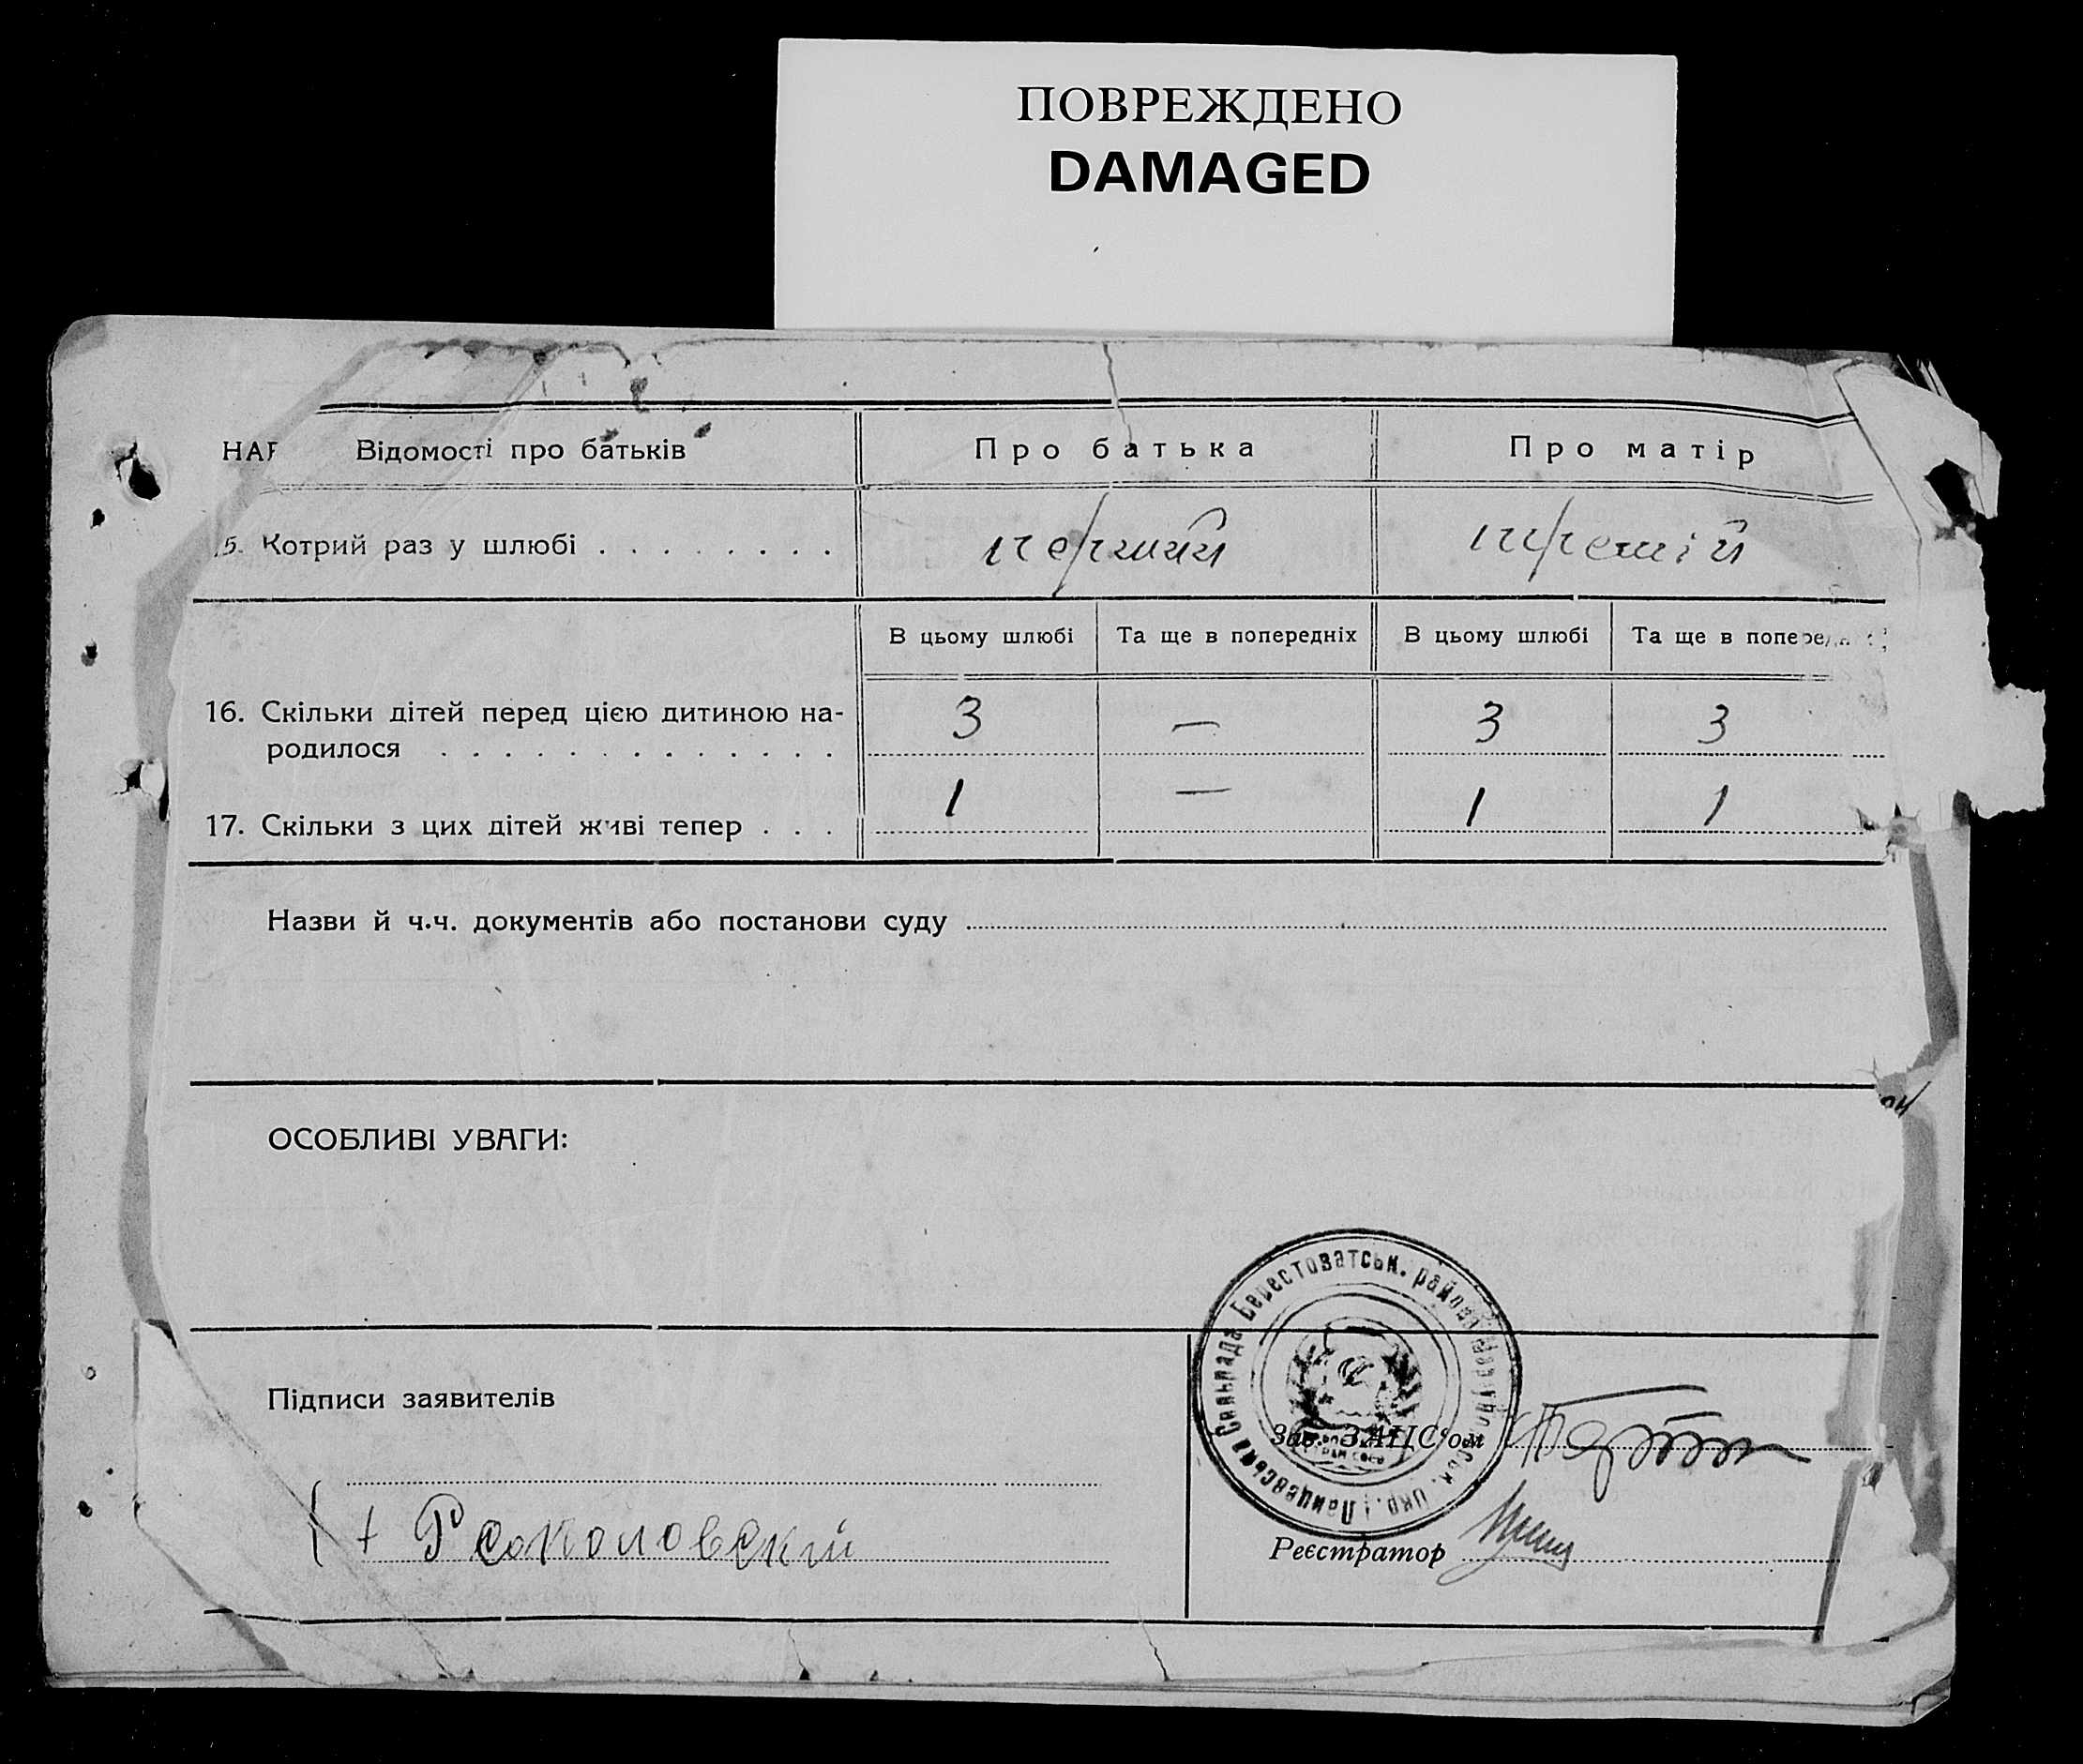 ПОВРЕЖДЕНО
DAMAGED
НАР Відомості про батьків Про батька Про матір
15. Котрий раз у шлюбі . . . . . . . . перший третій
В цьому шлюбі Та ще в попередніх В цьому шлюбі Та ще в поперед
16. Скільки дітей перед цією дитиною на-
родилося . . . . . . . . . . . . . 3 — 3 3
17. Скільки з цих дітей живі тепер . . . 1 — 1 1
Назви й ч.ч. документів або постанови суду
ОСОБЛИВІ УВАГИ:
Підписи заявителів
Берестоватськ. району
Сільрада
Зав. ЗАЦС'ом
+ Р Соколовский
Реєстратор